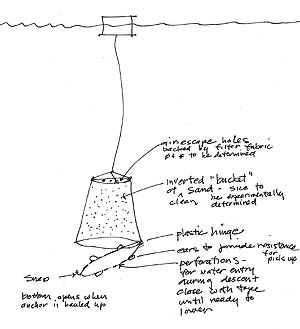 air escape holes
backed by filter fabric
to be determined
inverted "bucket"
of clean sand - size to
be experimentally
determined
plastic hinge
ears to provide resistance
for pick up
perforations -
for water entry
during descent
close with tape
until ready to
lower
Snap
bottom opens when
anchor is hauled up